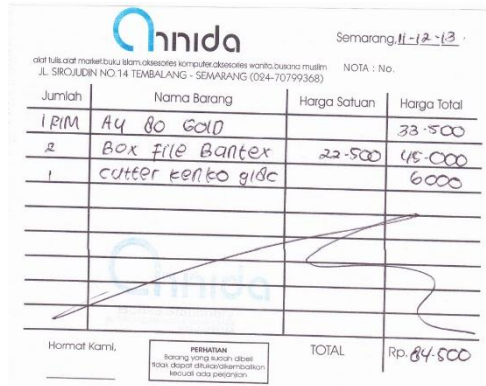 annida
Semarang, 11-12-13.
alat tulis.alat market.buku islam.aksesories komputer.aksesories wanita.busana muslim
NOTA : No.
JL. SIROJUDIN NO.14 TEMBALANG - SEMARANG (024-70799368)
Jumlah Nama Barang Harga Satuan Harga Total
1 RIM A4 80 GOLD 33.500
2 Box File Bantex 22.500 45.000
1 cutter kenko 6000
annida
Hormat Kami, PERHATIAN TOTAL Rp. 84.500
Barang yang sudah dibeli
tidak dapat ditukar/dikembalikan
kecuali ada perjanjian